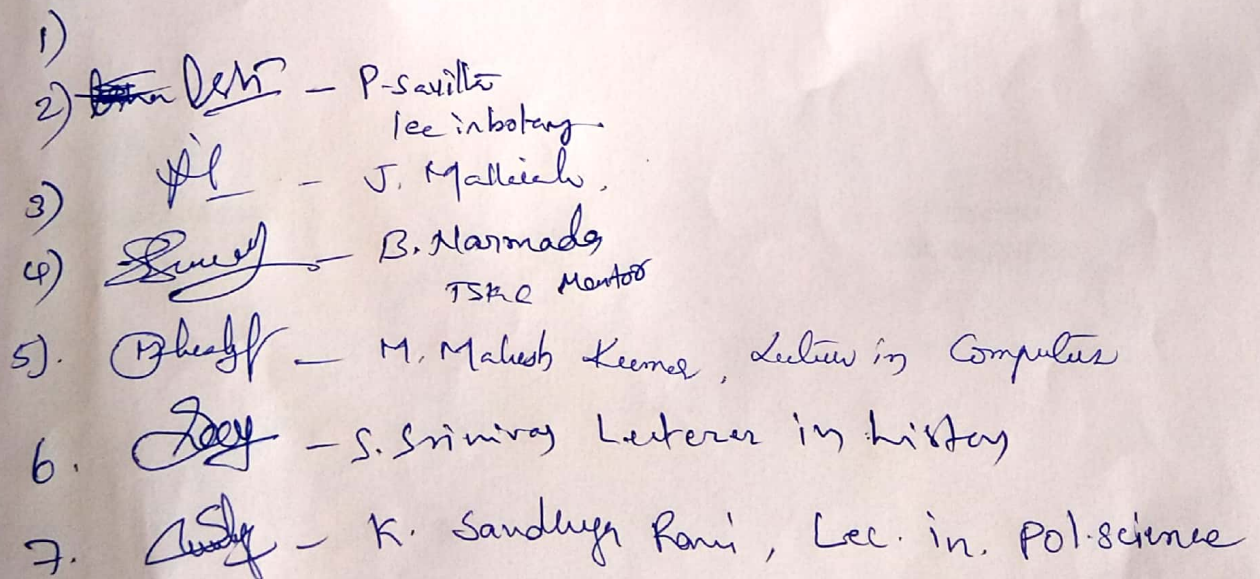 1)
2) - P. Savitha
lec in botany.
3) - J. Malliah,
4) - B. Narmada
TSKC Mentor
5). - M. Mahesh Kumar, Lecturer in Computers
6. - S. Srinivas Lecterer in history
7. - K. Sandhya Rani, Lec. in. pol.science